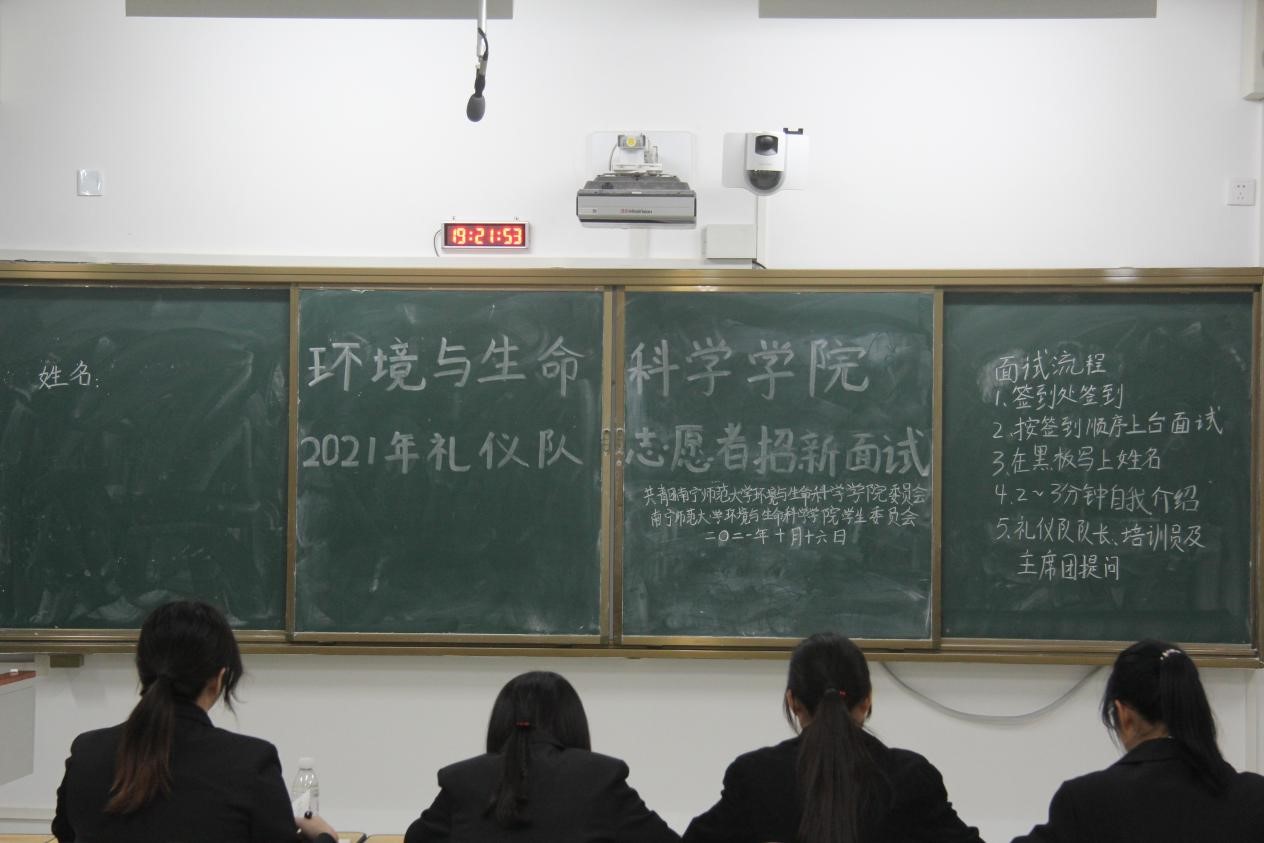 19:21:53
姓名:
环境与生命科学学院
2021年礼仪队志愿者招新面试
共青团南宁师范大学环境与生命科学学院委员会
南宁师范大学环境与生命科学学院学生委员会
二〇二一年十月十六日
面试流程
1、签到处签到
2、按签到顺序上台面试
3、在黑板写上姓名
4、2~3分钟自我介绍
5、礼仪队队长、培训员及
主席团提问